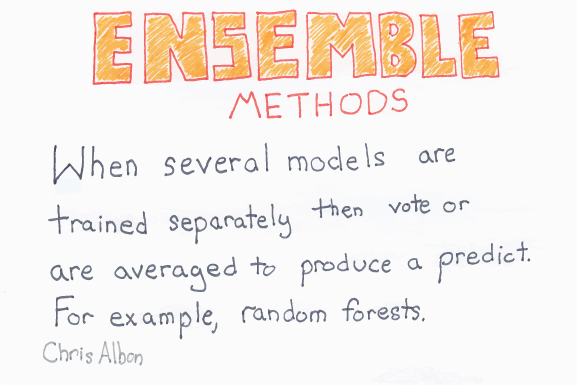 ENSEMBLE
METHODS
When several models are
trained separately then vote or
are averaged to produce a predict.
For example, random forests.
Chris Albon